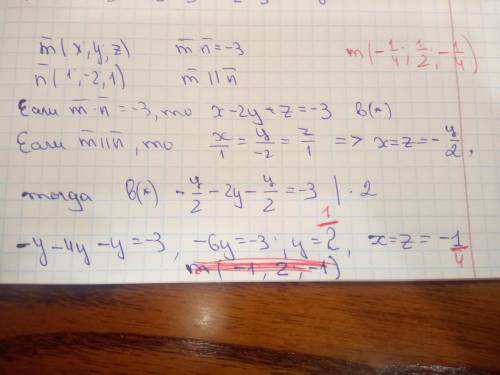 m̅(x; y; z)    m̅·n̅=-3    m(-1/4; 1/2; -1/4)
n̅(1, -2, 1)    m̅ || n̅
Если m̅·n̅=-3, то x-2y+z=-3 в(*)
Если m̅||n̅, то x/1 = y/-2 = z/1 => x=z=-y/2,
тогда в(*) -y/2-2y-y/2=-3 |·2
-y-4y-y=-3, -6y=-3; y=1/2, x=z=-1/4
m(-1, 2, -1)